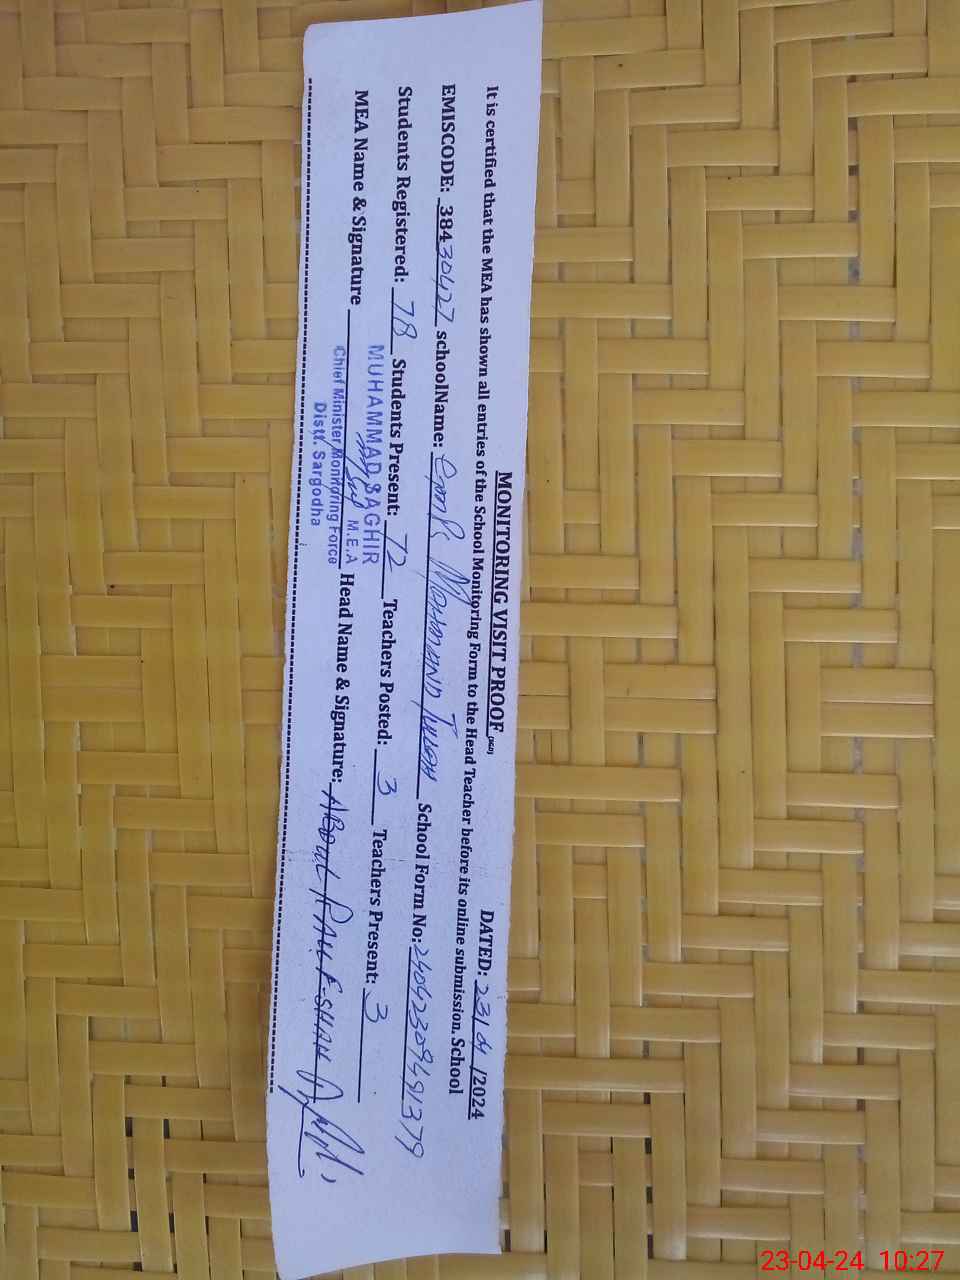 MONITORING VISIT PROOF
DATED: 23/04/2024
It is certified that the MEA has shown all entries of the School Monitoring Form to the Head Teacher before its online submission. School
EMISCODE: 38430427 schoolName: School Form No:
Students Registered: 78 Students Present: 72 Teachers Posted: 3 Teachers Present: 3
MEA Name & Signature MUHAMMAD SAGHIR Head Name & Signature: ABDUL RAUF SHAH
M.E.A
Chief Minister Monitoring Force
Distt. Sargodha
23-04-24 10:27